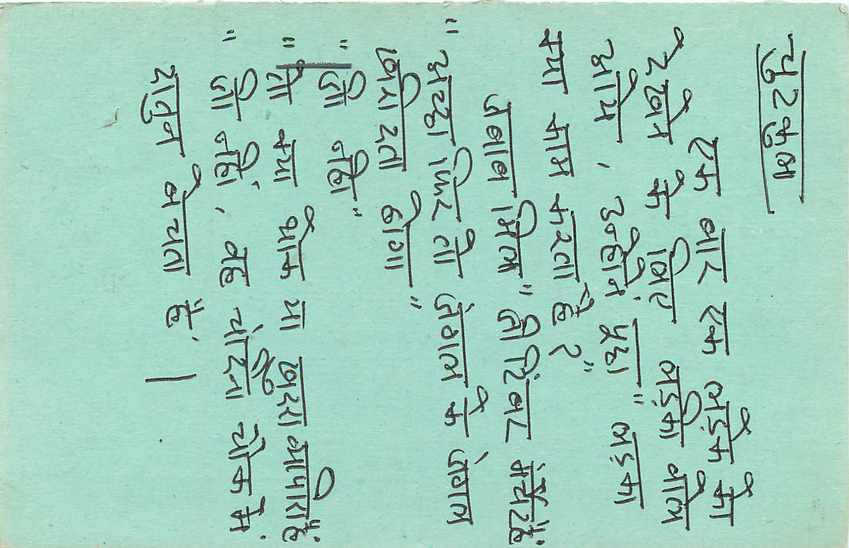 चुटकुला
एक बार एक लड़के को
देखने के लिए लड़की वाले
आये, उन्होंने पूछा " लड़का
क्या काम करता है?"
जवाब मिला " जी टिंबर मर्चेंट है"
" अच्छा फिर तो जंगल के जंगल
खरीदता होगा"
" जी नहीं"
" तो क्या थोक का व्यापारी है
" जी नहीं, वह चांदनी चौक में
दातुन बेचता है।